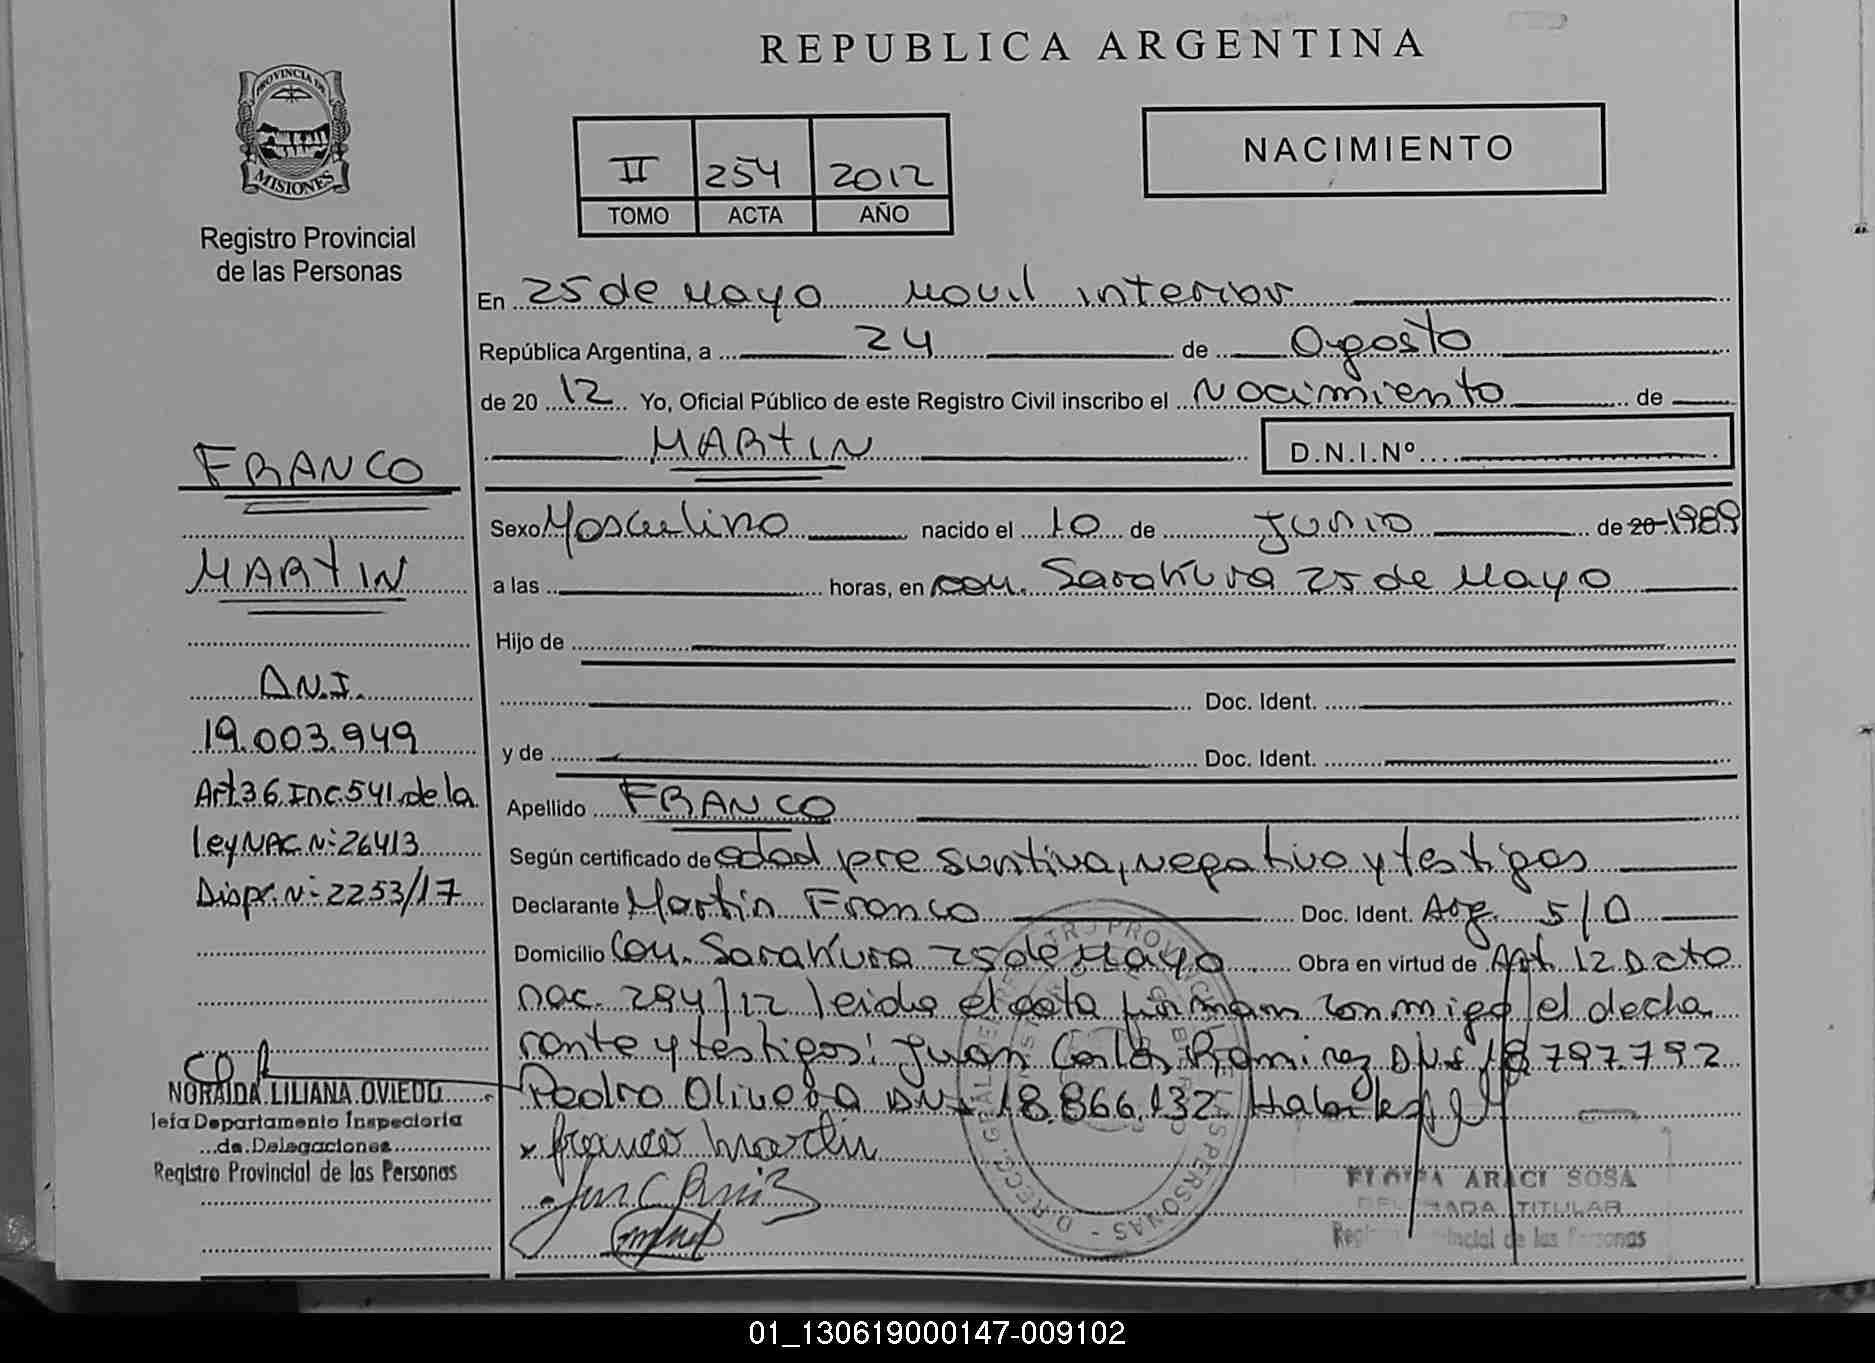 REPUBLICA ARGENTINA
PROVINCIA DE
MISIONES
Registro Provincial
de las Personas
II 254 2012
TOMO ACTA AÑO
NACIMIENTO
En 25 de Mayo Movil interior
República Argentina, a 24 de Agosto
de 20 12 Yo, Oficial Público de este Registro Civil inscribo el Nacimiento de
MARTIN D.N.I.Nº
FRANCO
MARTIN
D.N.I.
19.003.949
Art 36 Inc. 541 de la
ley NAC Nº 26413
Disp. Nº 2253/17
NORAIDA LILIANA OVIEDO
Jefa Departamento Inspectoria
de Delegaciones
Registro Provincial de las Personas
Sexo Masculino nacido el 10 de Junio de 20 1989
a las horas, en com. Sarakura 25 de Mayo
Hijo de
Doc. Ident.
y de Doc. Ident.
Apellido FRANCO
Según certificado de edad presuntiva, negativo y testigos
Declarante Martin Franco Doc. Ident. Arg. S/D
Domicilio Com. Sarakura 25 de Mayo Obra en virtud de Art. 12 Dcto
nac. 294/12 leida el acta firman conmigo el decla
rante y testigos: Juan Carlos Ramirez DNI 18.797.792
Pedro Olivera DNI 18.866.132
x Franco Martin
ELOISA ARACI SOSA
DELEGADA TITULAR
Registro Provincial de las Personas
01_130619000147-009102